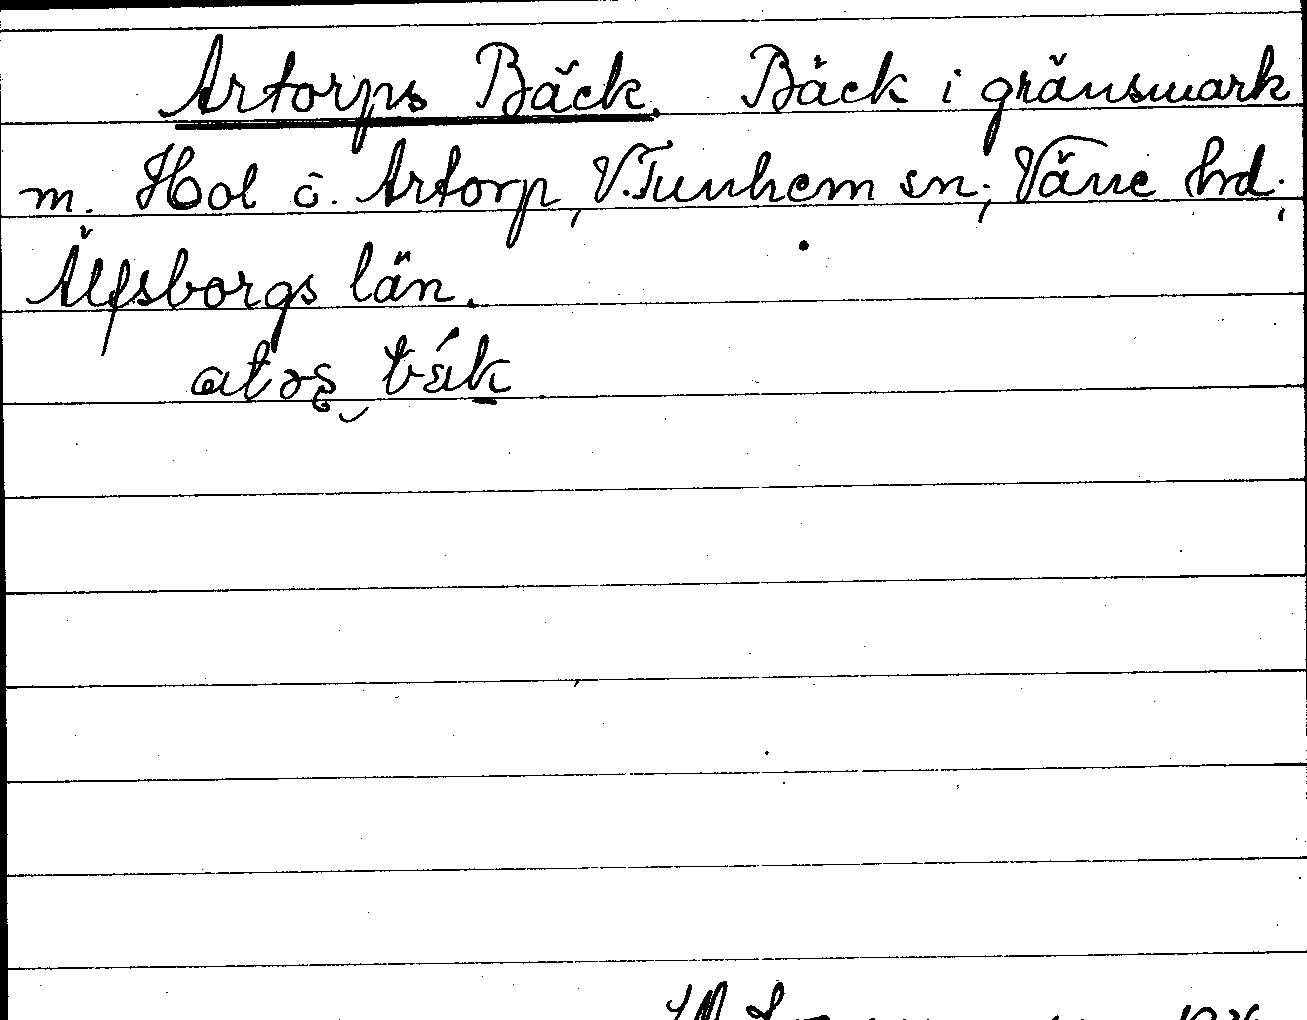 Artorps Bäck. Bäck i gränsmark
m. Hol o. Artorp, V. Tunhem sn; Väne hd;
Älfsborgs län.